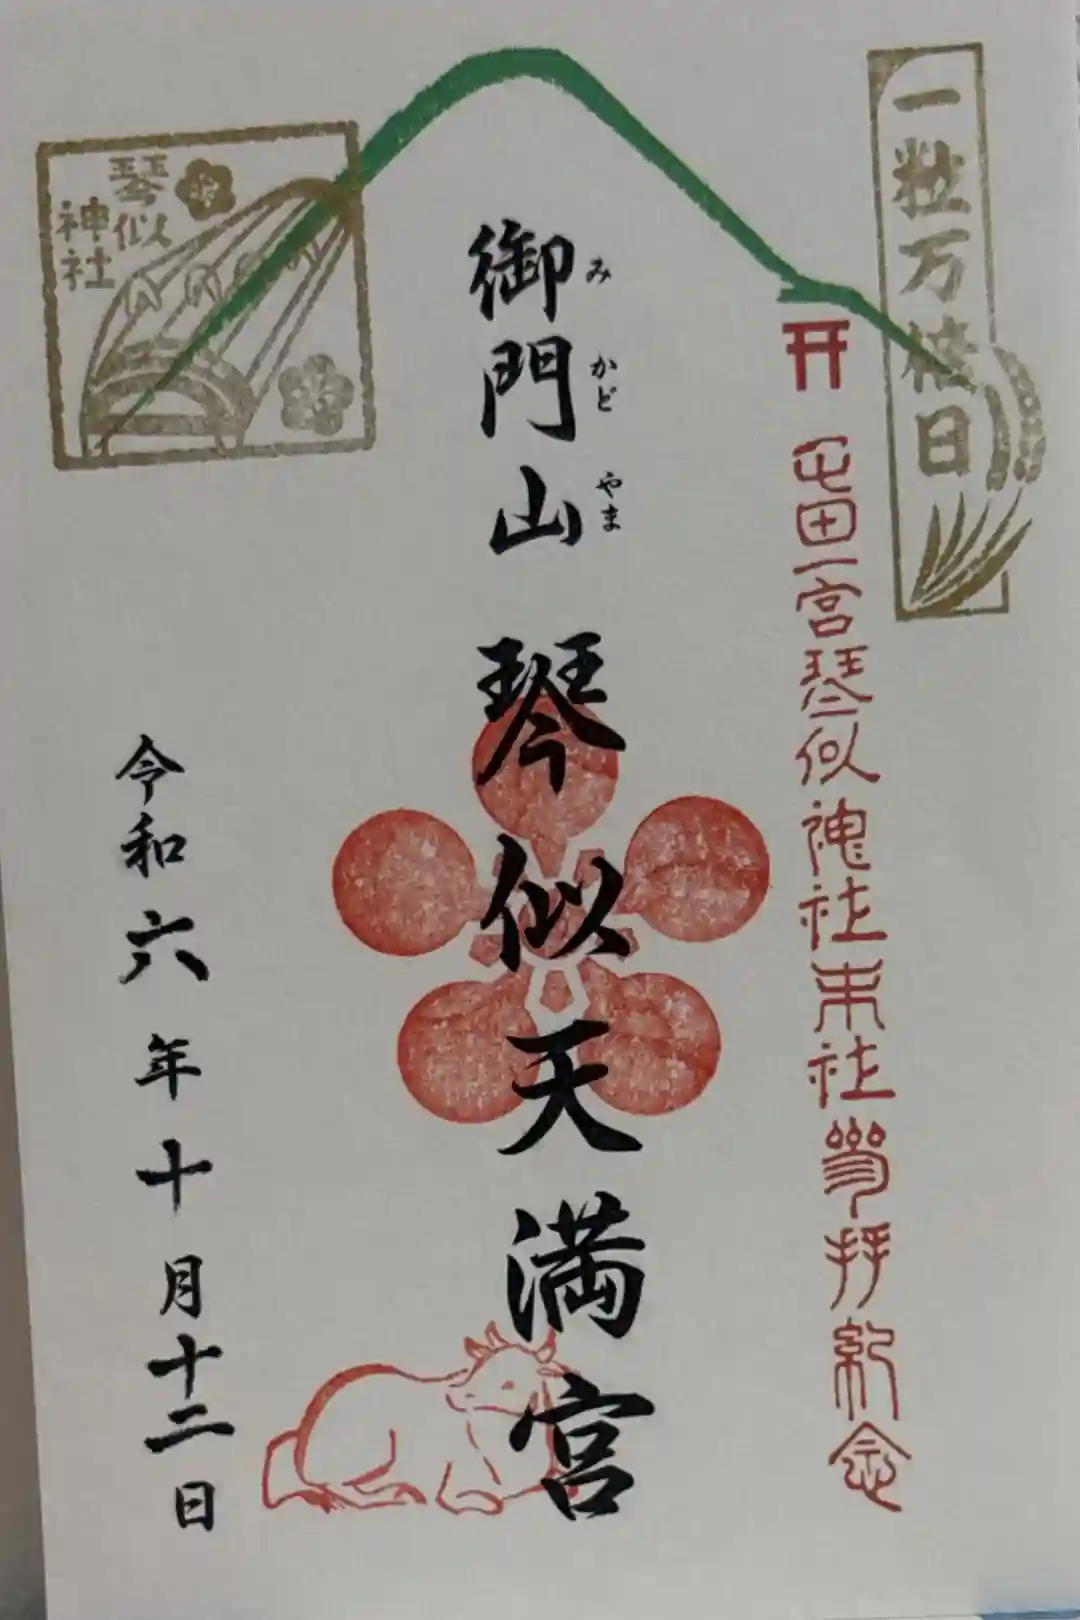 一粒万倍日
屯田一宮琴似神社末社参拝紀念
御門山 琴似天満宮
み かど やま
琴似
神社
令和六年十月十二日